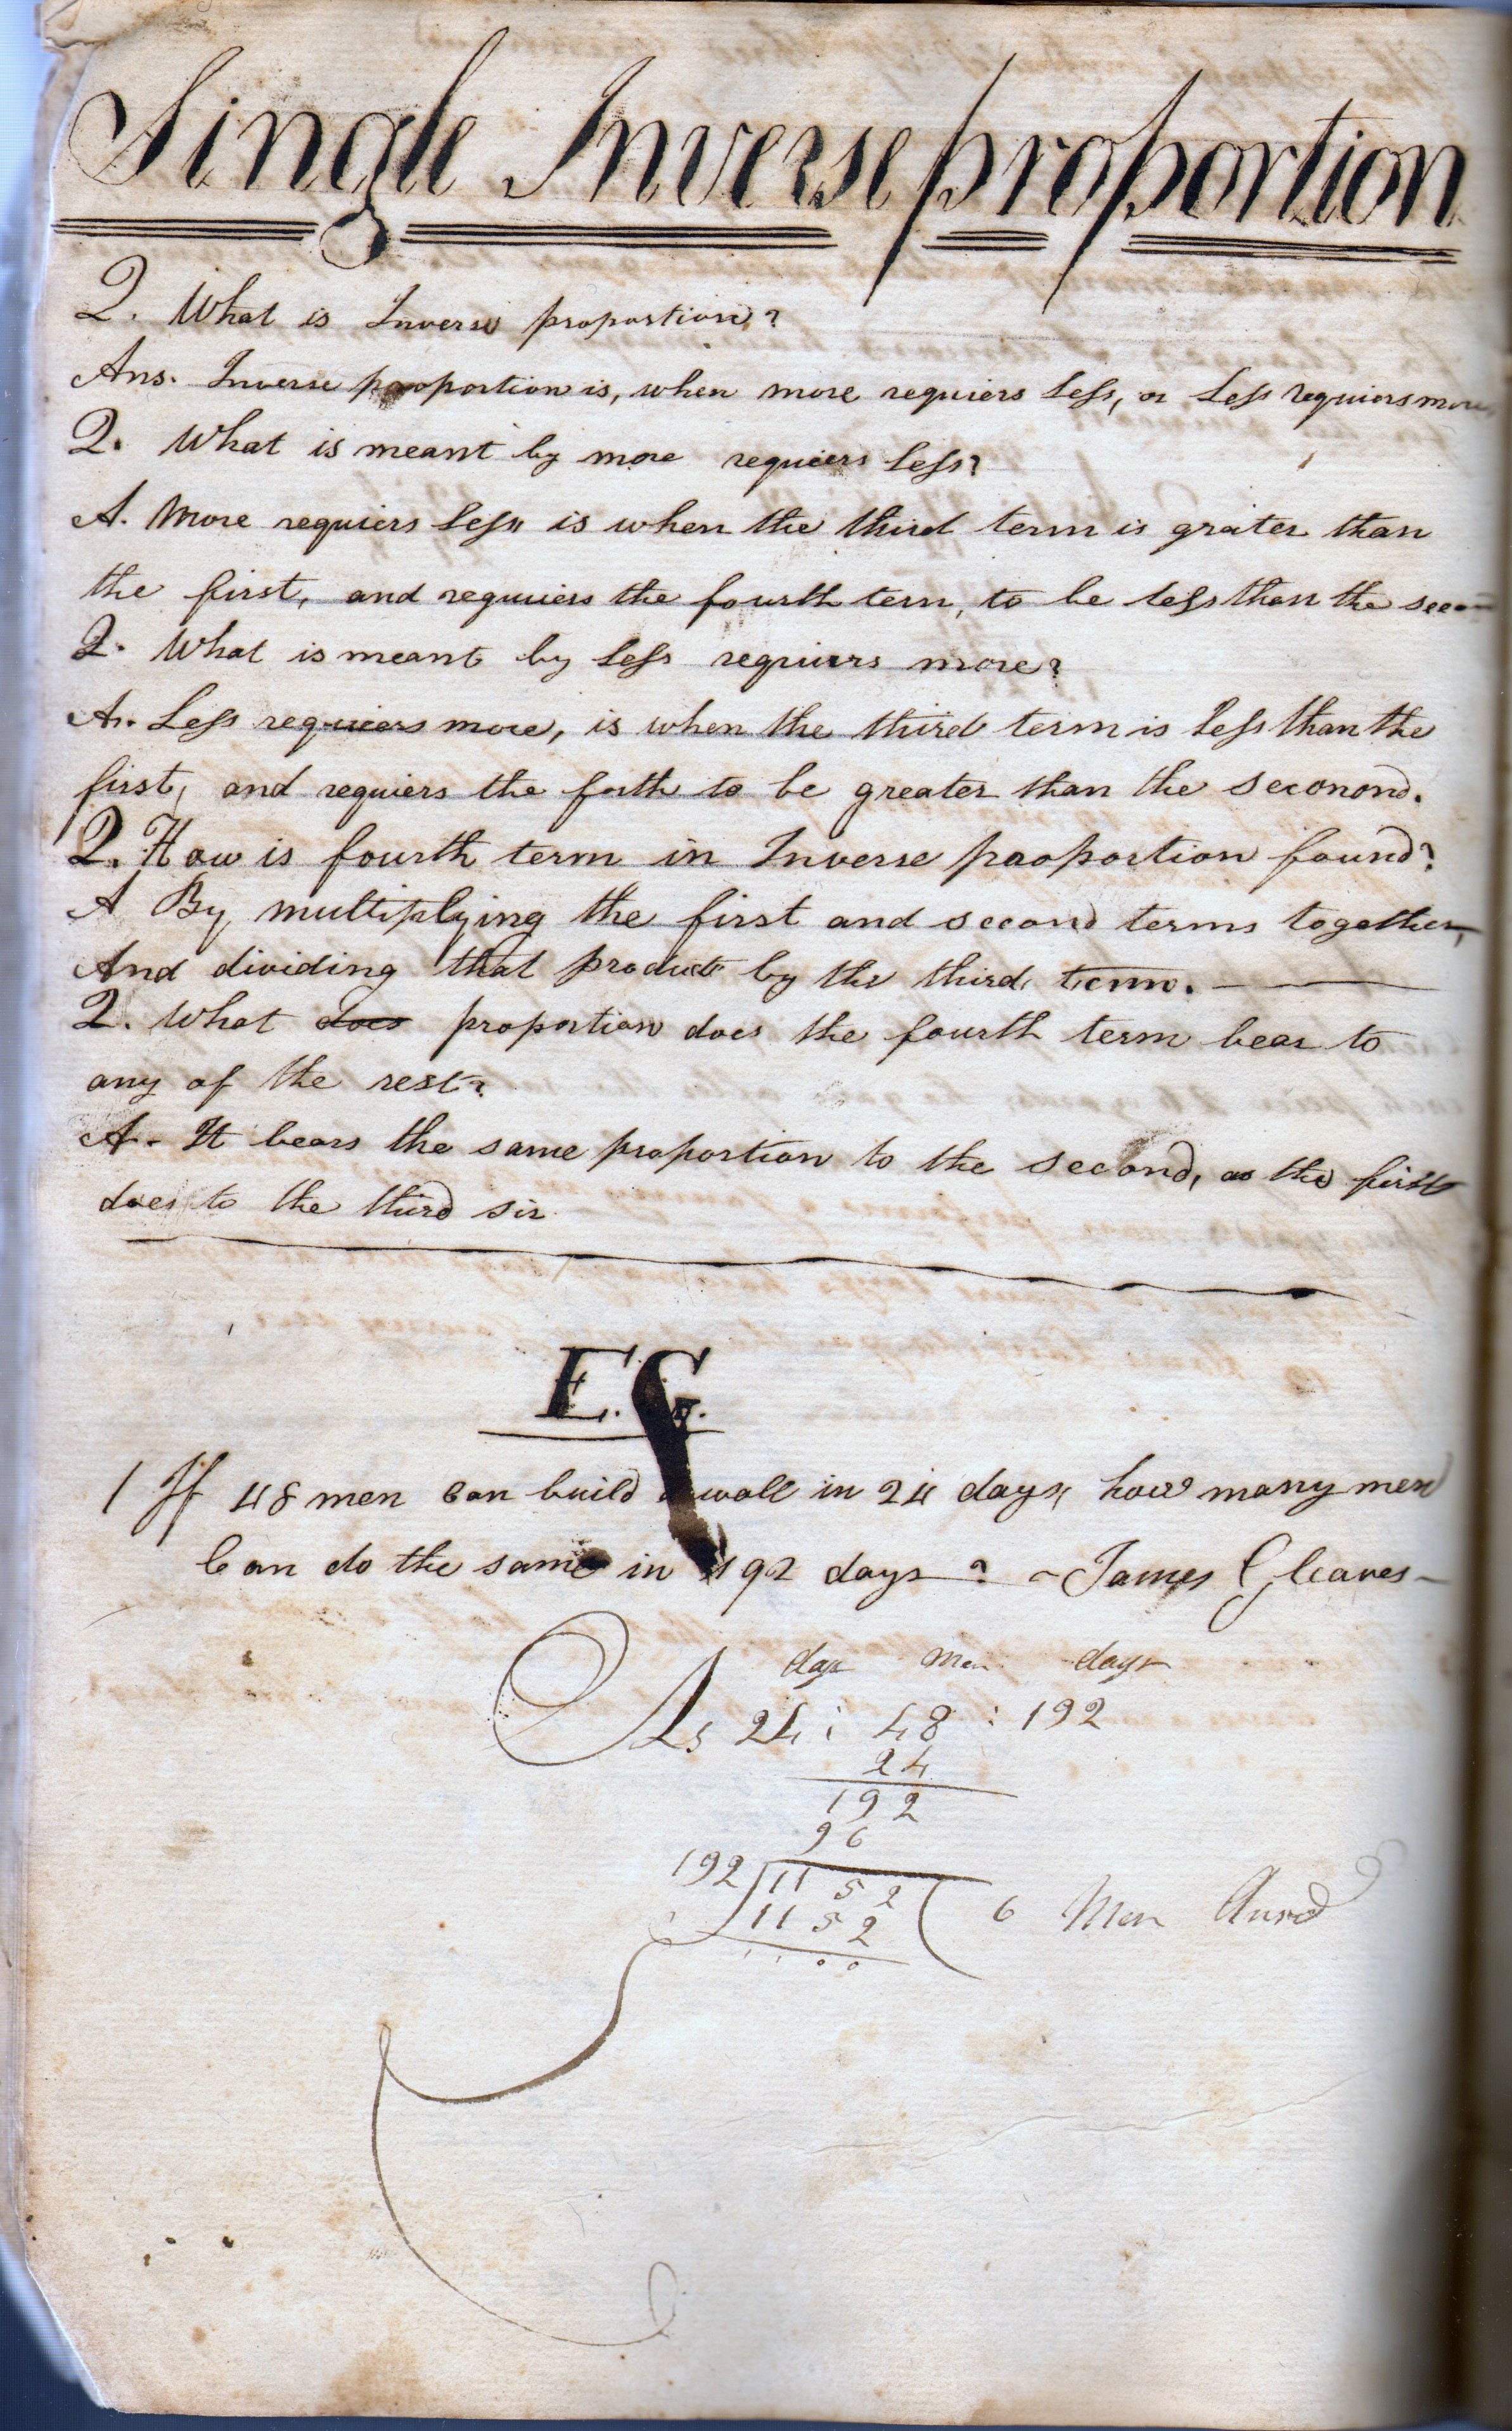 Single Inverse proportion
Q. What is Inverse proportion?
Ans. Inverse proportion is, when more requiers Less, or Less requiers more
Q. What is meant by more requiers Less?
A. More requiers Less is when the third term is grater than
the first, and requiers the fourth tern, to be less than the secon
Q. What is meant by Less requiers more?
A. Less requiers more, is when the third term is Less than the
first, and requiers the forth to be greater than the seconond.
Q. How is fourth term in Inverse paoportion found?
A By multiplying the first and second terms together,
And dividing that product by the third term.
Q. What does proportion does the fourth term bear to
any of the rest?
A. It bears the same proportion to the second, as the first
does to the third sir
E.G.
1 If 48 men Can build a wall in 24 days, how many men
Can do the same in 192 days? James Gleaves
days Men days
As 24 : 48 : 192
24
192
96
192 1152 ( 6 Men Answd
1152